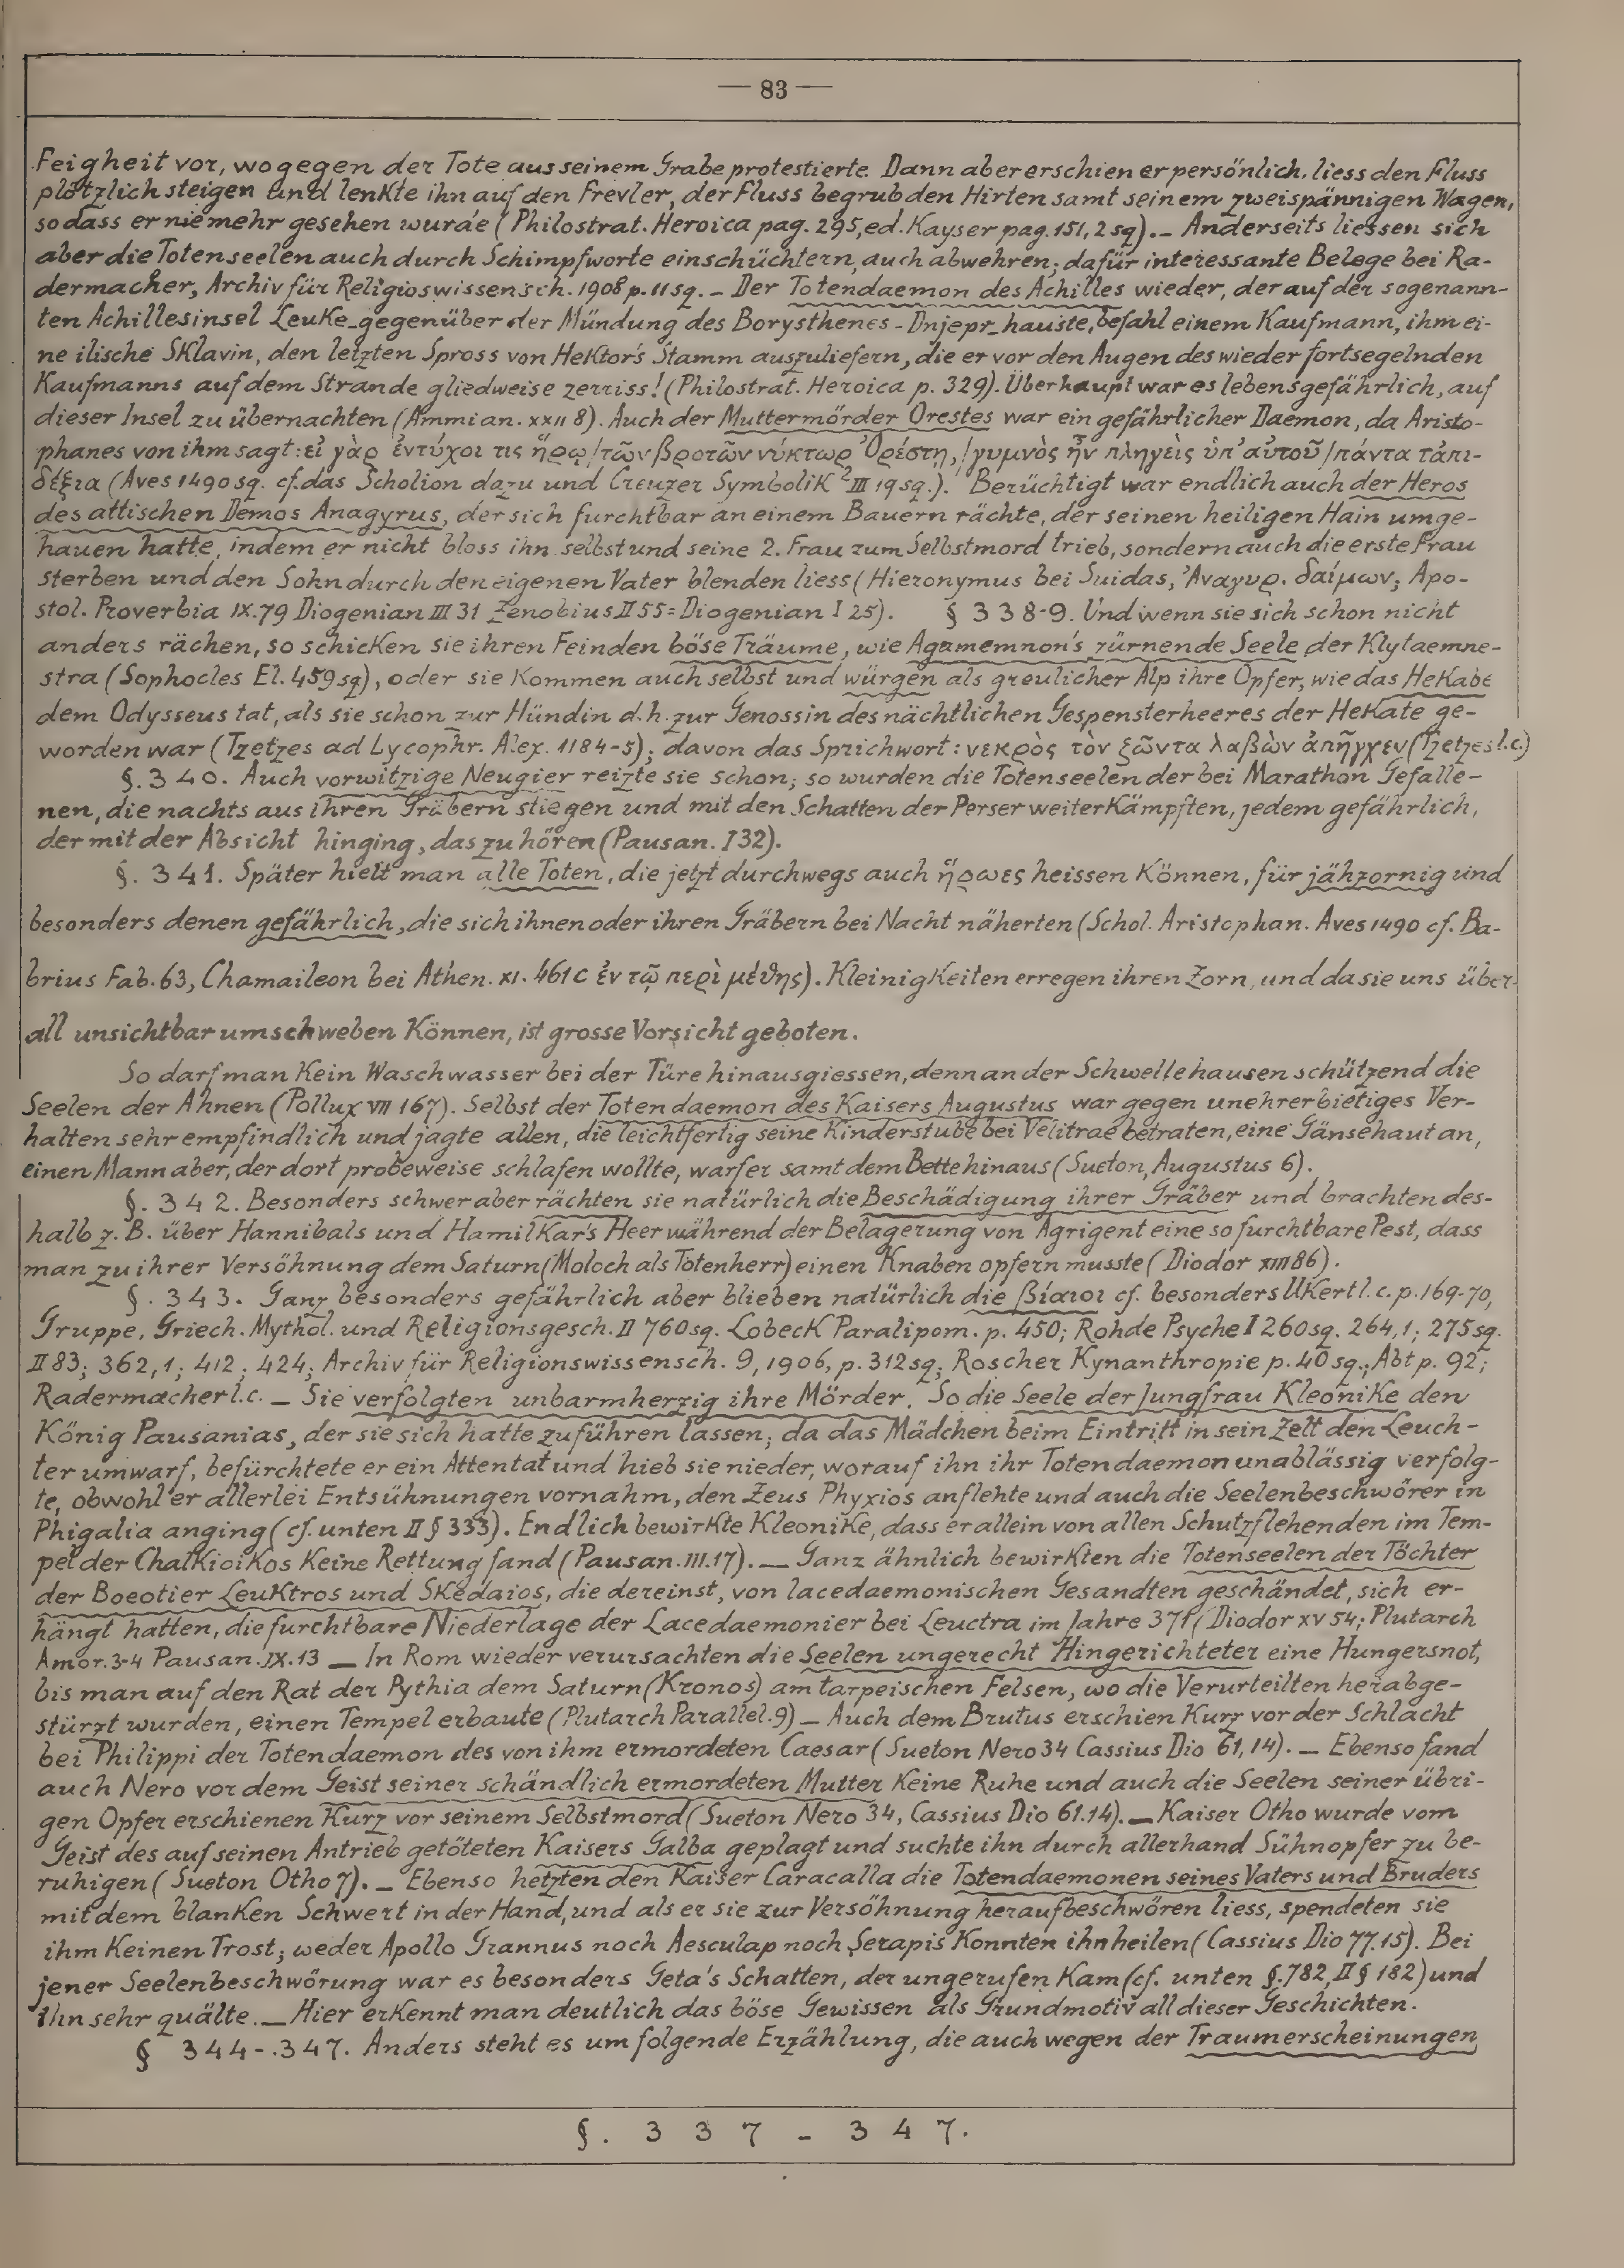 — 83 —
Feigheit vor, wogegen der Tote aus seinem Grabe protestierte. Dann aber erschien er persönlich, liess den Fluss
plötzlich steigen und lenkte ihn auf den Frevler, der Fluss begrub den Hirten samt seinem zweispännigen Wagen,
so dass er nie mehr gesehen wurde (Philostrat. Heroica pag. 295, ed. Kayser pag. 151, 2 sq). – Anderseits liessen sich
aber die Totenseelen auch durch Schimpfworte einschüchtern, auch abwehren; dafür interessante Belege bei Ra-
dermacher, Archiv für Religioswissensch. 1908 p. 11 sq. – Der Totendaemon des Achilles wieder, der auf der sogenann-
ten Achillesinsel Leuke gegenüber der Mündung des Borysthenes - Dnjepr hauste, befahl einem Kaufmann, ihm ei-
ne ilische Sklavin, den letzten Spross von Hektor's Stamm auszuliefern, die er vor den Augen des wieder fortsegelnden
Kaufmanns auf dem Strande gliedweise zerriss! (Philostrat. Heroica p. 329). Überhaupt war es lebensgefährlich, auf
dieser Insel zu übernachten (Ammian. XXII 8). Auch der Muttermörder Orestes war ein gefährlicher Daemon, da Aristo-
phanes von ihm sagt: εἰ γὰρ ἐντύχοι τις ἥρῳ / τῶν βροτῶν νύκτωρ Ὀρέστῃ, / γυμνὸς ἦν πληγεὶς ὑπ' αὐτοῦ / πάντα τἀπι-
δέξια (Aves 1490 sq. cf. das Scholion dazu und Creuzer Symbolik ² III 19 sq.). Berüchtigt war endlich auch der Heros
des attischen Demos Anagyrus, der sich furchtbar an einem Bauern rächte, der seinen heiligen Hain umge-
hauen hatte, indem er nicht bloss ihn selbst und seine 2. Frau zum Selbstmord trieb, sondern auch die erste Frau
sterben und den Sohn durch den eigenen Vater blenden liess (Hieronymus bei Suidas, Ἀναγυρ. δαίμων; Apo-
stol. Proverbia IX. 79 Diogenian III 31 Zenobius II 55 = Diogenian I 25). § 338-9. Und wenn sie sich schon nicht
anders rächen, so schicken sie ihren Feinden böse Träume, wie Agamemnon's zürnende Seele der Klytaemne-
stra (Sophocles El. 459 sq), oder sie kommen auch selbst und würgen als greulicher Alp ihre Opfer, wie das Hekabe
dem Odysseus tat, als sie schon zur Hündin d.h. zur Genossin des nächtlichen Gespensterheeres der Hekate ge-
worden war (Tzetzes ad Lycophr. Alex. 1184-5); davon das Sprichwort: νεκρὸς τὸν ζῶντα λαβὼν ἀπῆγχεν (Tzetzes l.c.)
§. 340. Auch vorwitzige Neugier reizte sie schon; so wurden die Totenseelen der bei Marathon Gefalle-
nen, die nachts aus ihren Gräbern stiegen und mit den Schatten der Perser weiterkämpften, jedem gefährlich,
der mit der Absicht hinging, das zu hören (Pausan. I 32).
§. 341. Später hielt man alle Toten, die jetzt durchwegs auch ἥρωες heissen können, für jähzornig und
besonders denen gefährlich, die sich ihnen oder ihren Gräbern bei Nacht näherten (Schol. Aristophan. Aves 1490 cf. Ba-
brius Fab. 63, Chamaileon bei Athen. XI. 461 c ἐν τῷ περὶ μέθης). Kleinigkeiten erregen ihren Zorn, und da sie uns über-
all unsichtbar umschweben können, ist grosse Vorsicht geboten.
So darf man kein Waschwasser bei der Türe hinausgiessen, denn an der Schwelle hausen schützend die
Seelen der Ahnen (Pollux VII 167). Selbst der Totendaemon des Kaisers Augustus war gegen unehrerbietiges Ver-
halten sehr empfindlich und jagte allen, die leichtfertig seine Kinderstube bei Velitrae betraten, eine Gänsehaut an,
einen Mann aber, der dort probeweise schlafen wollte, warf er samt dem Bette hinaus (Sueton, Augustus 6).
§. 342. Besonders schwer aber rächten sie natürlich die Beschädigung ihrer Gräber und brachten des-
halb z. B. über Hannibals und Hamilkar's Heer während der Belagerung von Agrigent eine so furchtbare Pest, dass
man zu ihrer Versöhnung dem Saturn (Moloch als Totenherr) einen Knaben opfern musste (Diodor XIII 86).
§. 343. Ganz besonders gefährlich aber blieben natürlich die βίαιοι cf. besonders Ukert l. c. p. 169-70,
Gruppe, Griech. Mythol. und Religionsgesch. II 760 sq. Lobeck Paralipom. p. 450; Rohde Psyche I 260 sq. 264, 1; 275 sq.
II 83; 362, 1; 412; 424; Archiv für Religionswissensch. 9, 1906, p. 312 sq; Roscher Kynanthropie p. 40 sq.; Abt p. 92;
Radermacher l.c. – Sie verfolgten unbarmherzig ihre Mörder. So die Seele der Jungfrau Kleonike den
König Pausanias, der sie sich hatte zuführen lassen; da das Mädchen beim Eintritt in sein Zelt den Leuch-
ter umwarf, befürchtete er ein Attentat und hieb sie nieder, worauf ihn ihr Totendaemon unablässig verfolg-
te, obwohl er allerlei Entsühnungen vornahm, den Zeus Phyxios anflehte und auch die Seelenbeschwörer in
Phigalia anging (cf. unten II § 333). Endlich bewirkte Kleonike, dass er allein von allen Schutzflehenden im Tem-
pel der Chalkioikos keine Rettung fand (Pausan. III. 17). — Ganz ähnlich bewirkten die Totenseelen der Töchter
der Boeotier Leuktros und Skedaios, die dereinst, von lacedaemonischen Gesandten geschändet, sich er-
hängt hatten, die furchtbare Niederlage der Lacedaemonier bei Leuctra im Jahre 371 (Diodor XV 54; Plutarch
Amor. 3-4 Pausan. IX. 13 — In Rom wieder verursachten die Seelen ungerecht Hingerichteter eine Hungersnot,
bis man auf den Rat der Pythia dem Saturn (Kronos) am tarpeischen Felsen, wo die Verurteilten herabge-
stürzt wurden, einen Tempel erbaute (Plutarch Parallel. 9) – Auch dem Brutus erschien kurz vor der Schlacht
bei Philippi der Totendaemon des von ihm ermordeten Caesar (Sueton Nero 34 Cassius Dio 61, 14). – Ebenso fand
auch Nero vor dem Geist seiner schändlich ermordeten Mutter keine Ruhe und auch die Seelen seiner übri-
gen Opfer erschienen kurz vor seinem Selbstmord (Sueton Nero 34, Cassius Dio 61. 14). — Kaiser Otho wurde vom
Geist des auf seinen Antrieb getöteten Kaisers Galba geplagt und suchte ihn durch allerhand Sühnopfer zu be-
ruhigen (Sueton Otho 7). – Ebenso hetzten den Kaiser Caracalla die Totendaemonen seines Vaters und Bruders
mit dem blanken Schwert in der Hand, und als er sie zur Versöhnung heraufbeschwören liess, spendeten sie
ihm keinen Trost; weder Apollo Grannus noch Aesculap noch Serapis konnten ihn heilen (Cassius Dio 77. 15). Bei
jener Seelenbeschwörung war es besonders Geta's Schatten, der ungerufen kam (cf. unten §. 782, II § 182) und
ihn sehr quälte. — Hier erkennt man deutlich das böse Gewissen als Grundmotiv all dieser Geschichten.
§ 344-.347. Anders steht es um folgende Erzählung, die auch wegen der Traumerscheinungen
§. 337 - 347.